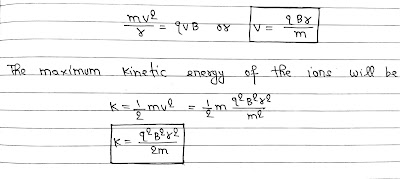 mv²/r = qvB or v = qBr/m
The maximum kinetic energy of the ions will be
K = 1/2 mv² = 1/2 m q²B²r²/m²
K = q²B²r²/2m